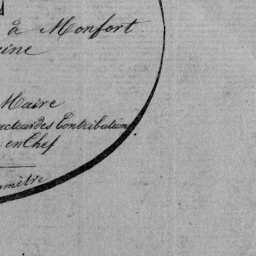 à Monfort
eine
Maire
ecteur des Contributions
en Chef
omètre